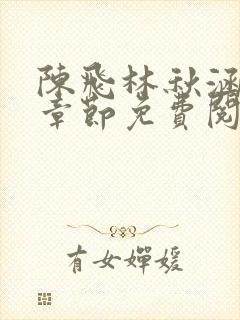 陳飛林秋涵
章節免費閱
有女嬋媛